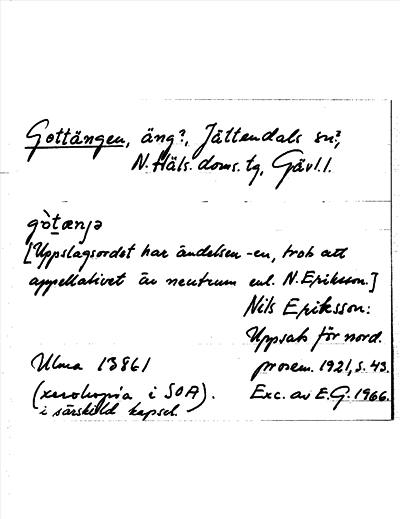 Gottängen, äng?, Jättendals sn?,
N. Häls. doms. tg, Gävl. l.
gòtænjə
[Uppslagsordet har ändelsen -en, trots att
appellativet är neutrum enl. N. Eriksson.]
Nils Eriksson:
Uppsats för nord.
prosem. 1921, s. 43.
Exc. av E.G. 1966.
Ulma 13861
(xerokopia i SOA).
i särskild kapsel.